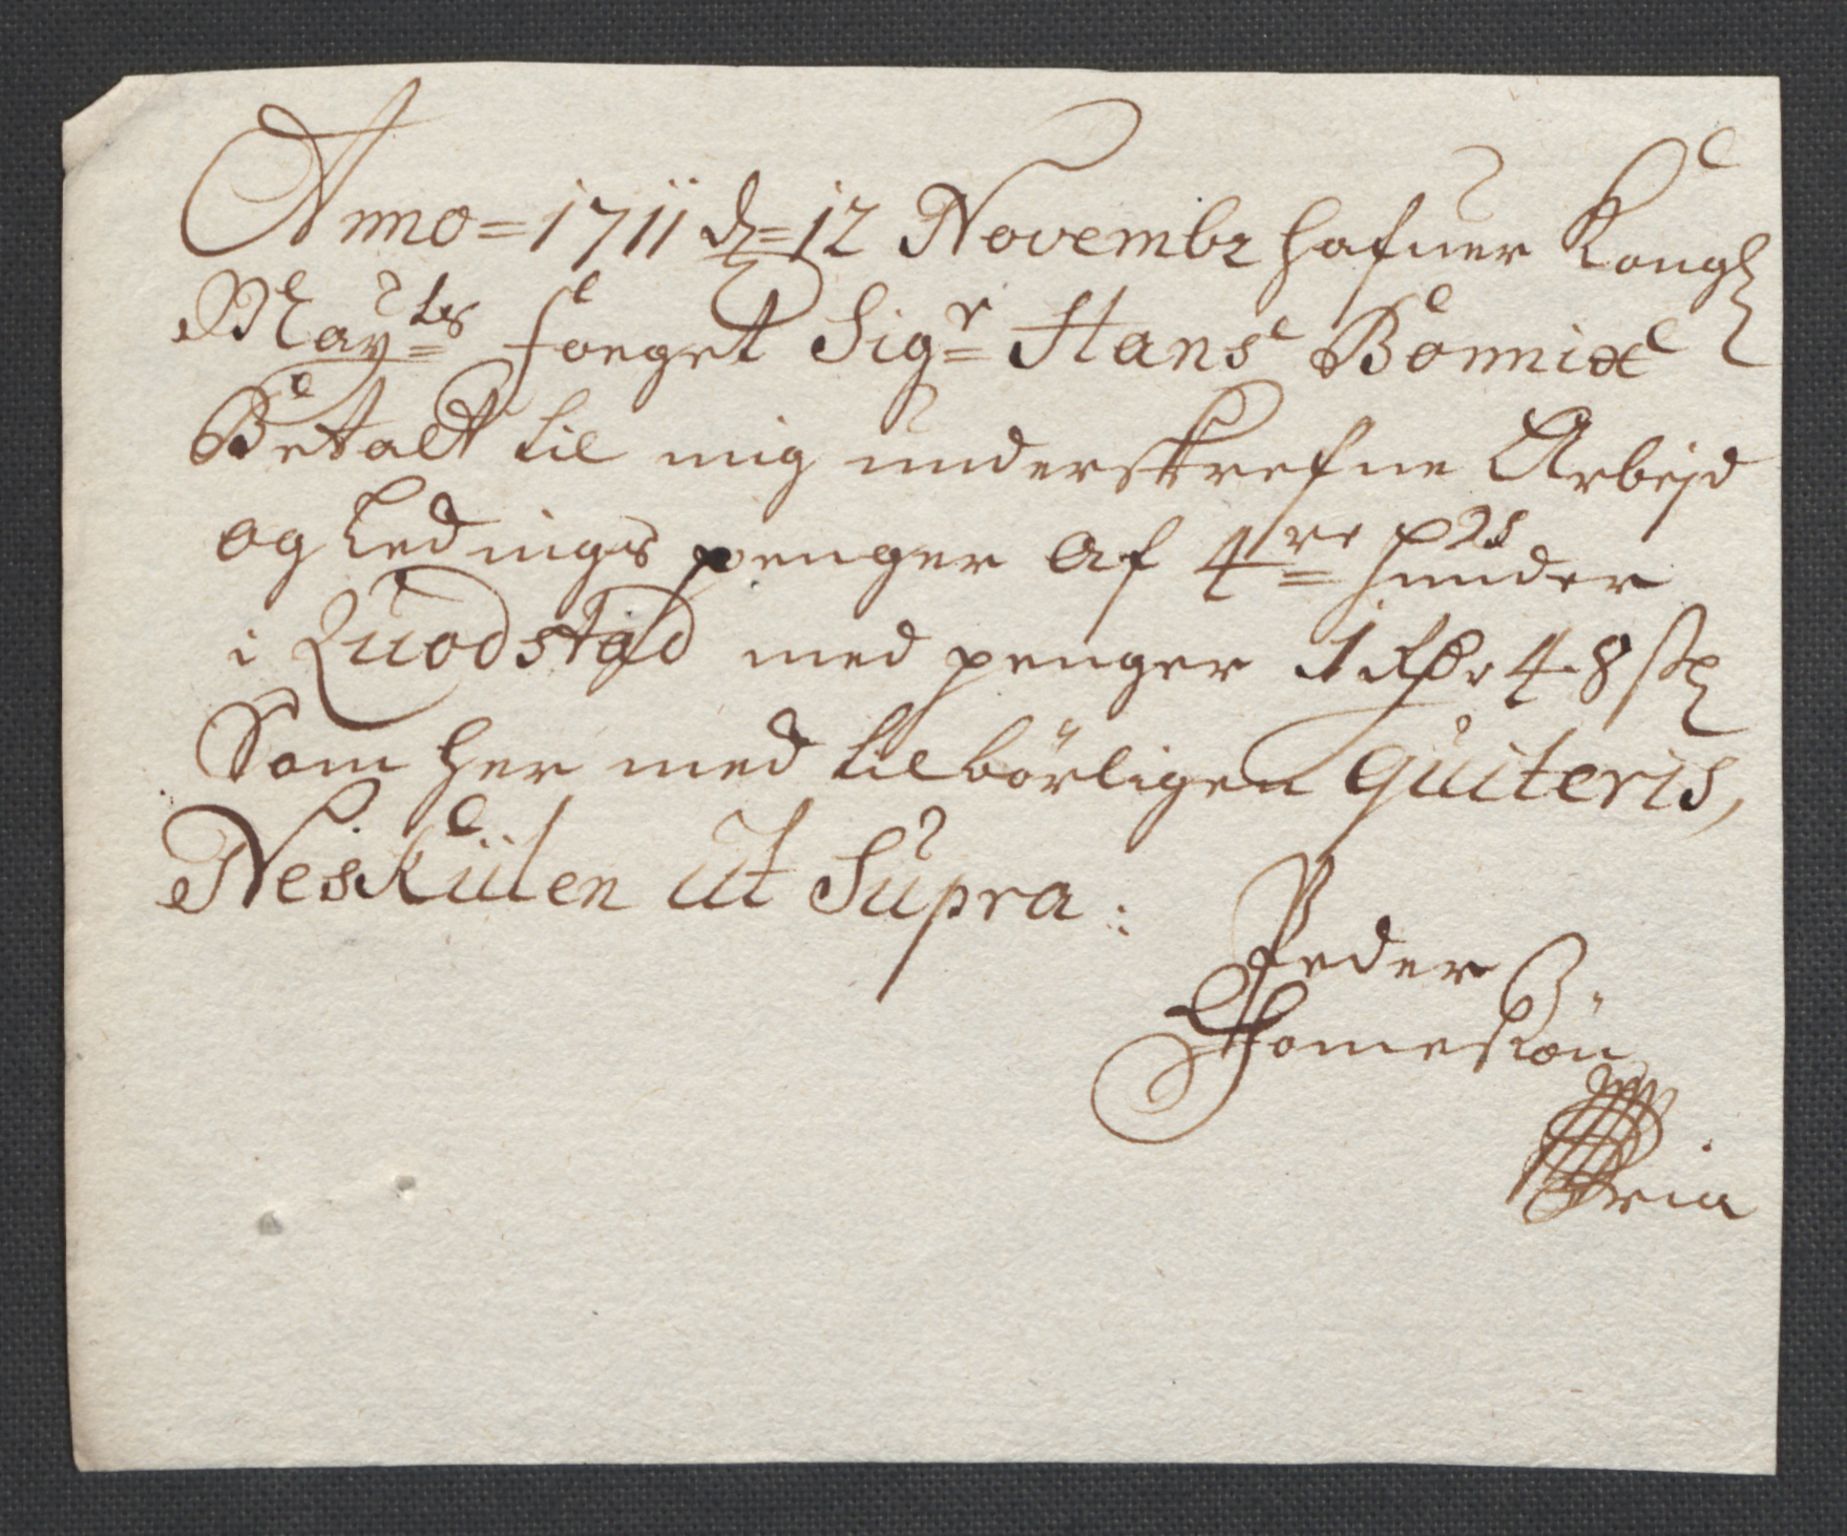 Anno = 1711 d = 12 Novembr hafuer Kongl
Mayts foeget Sigr Hans Bonnix
Betalt til mig underskrefne Arbejd
og Lednings penger af 4re pds hunder
i Quodstad med penger 1 Rdr 48 sk
Som her med tilbörligen quiteris,
Neskülen ut Supra :
Peder